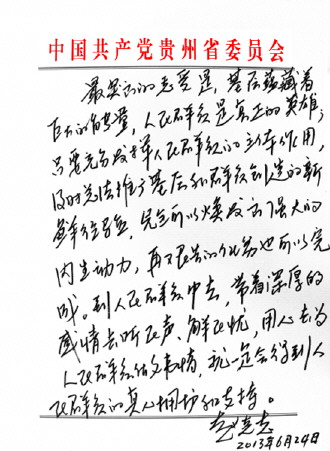 中国共产党贵州省委员会
最深刻的感受是，基层蕴藏着
巨大的能量，人民群众是真正的英雄；
只要充分发挥人民群众的主体作用，
及时总结推广基层和群众创造的新
鲜经验，完全可以焕发出强大的
内生动力，再艰巨的任务也可以完
成。到人民群众中去，带着深厚的
感情去听民声、解民忧，用心去为
人民群众的事情，就一定会得到人
民群众的真心拥护和支持。
2013年6月24日